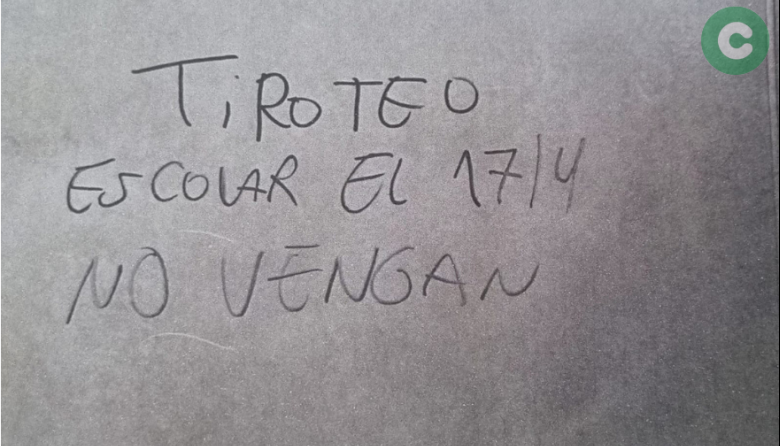 TiROTEO
ESCOLAR El 17/4
NO VENGAN
C